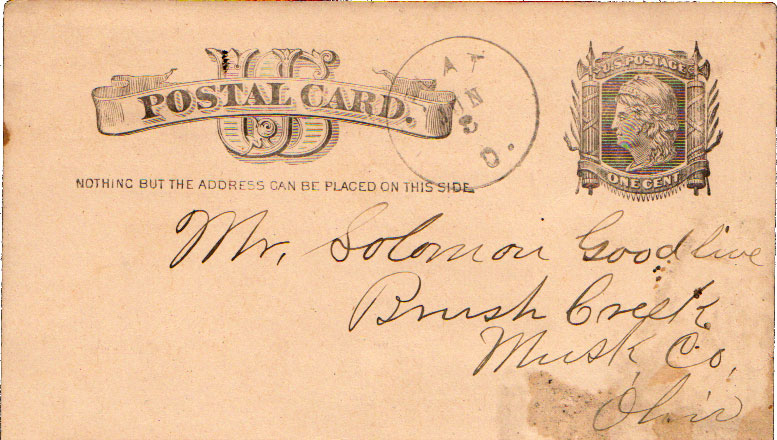 US
POSTAL CARD.
U.S. POSTAGE
ONE CENT
NOTHING BUT THE ADDRESS CAN BE PLACED ON THIS SIDE.
Mr. Solomon Goodlive
Brush Creek
Musk, Co,
Ohio